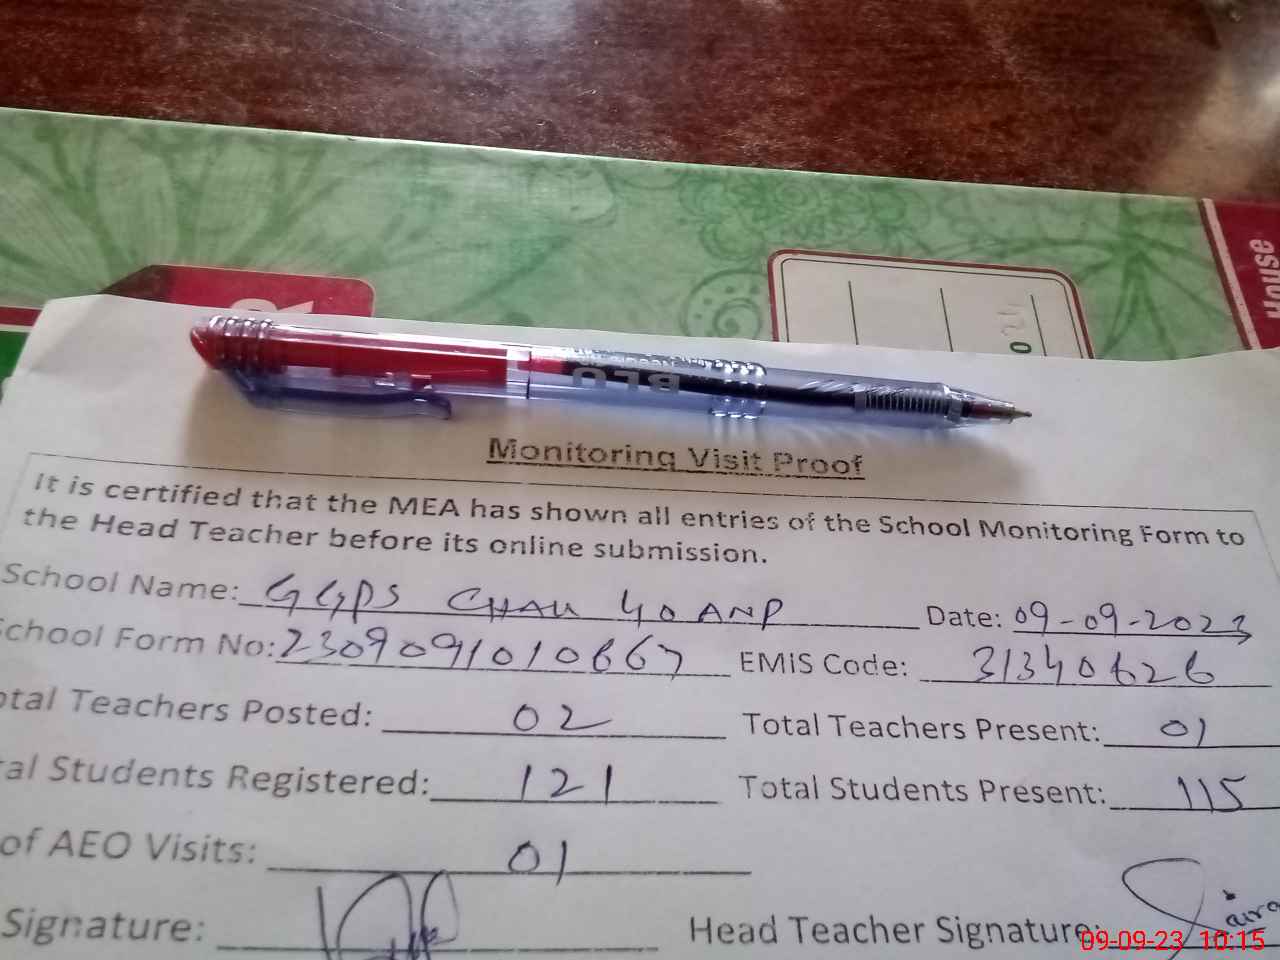 House
BLU
Monitoring Visit Proof
It is certified that the MEA has shown all entries of the School Monitoring Form to
the Head Teacher before its online submission.
School Name: GGPS CHAH 40 ANP Date: 09-09-2023
School Form No: 2309091010667 EMIS Code: 31340626
otal Teachers Posted: 02 Total Teachers Present: 01
al Students Registered: 121 Total Students Present: 115
of AEO Visits: 01
Signature: Head Teacher Signature:
09-09-23 10:15